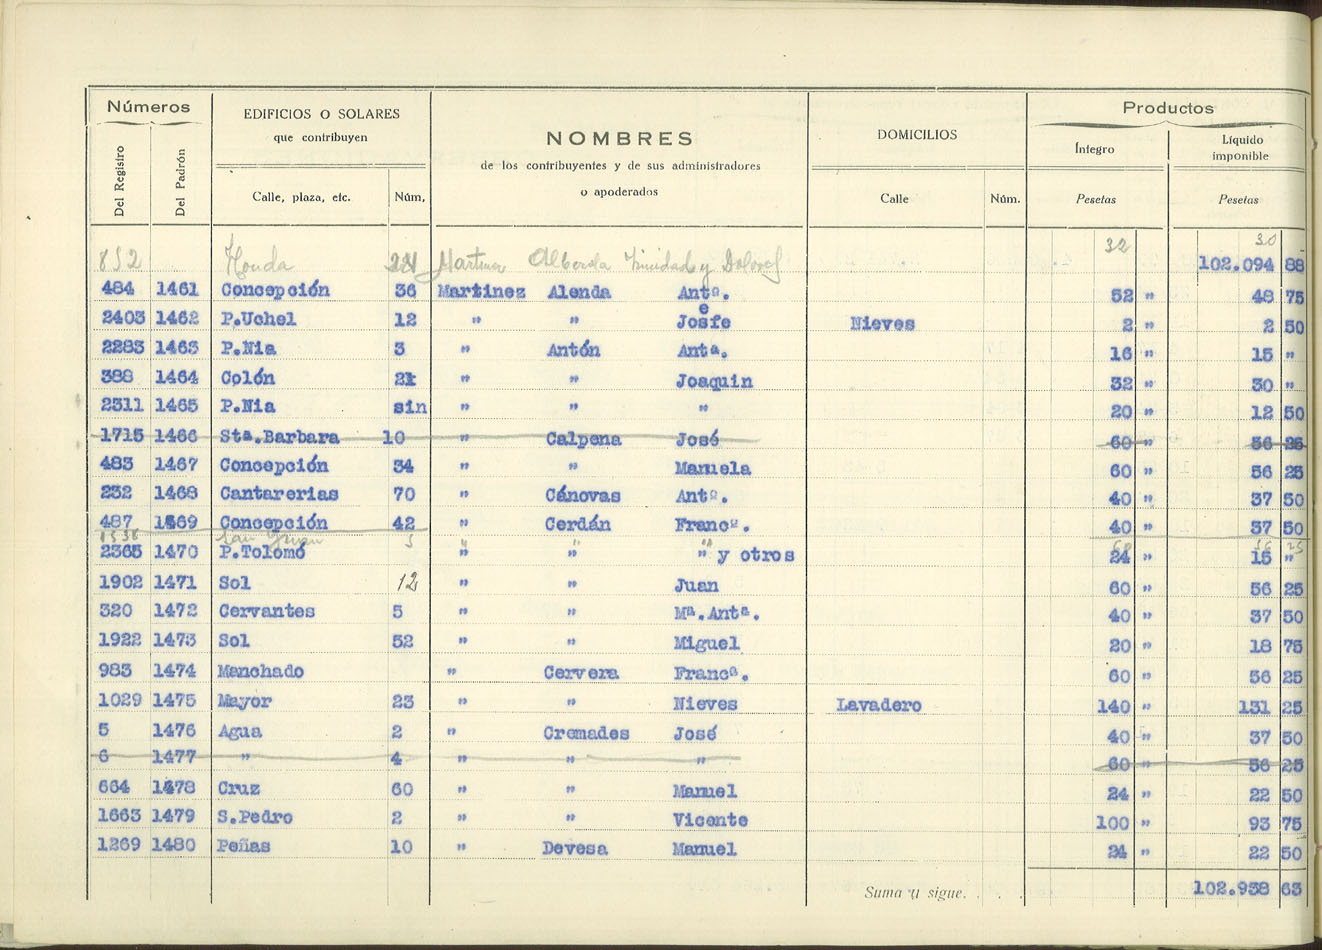 Números EDIFICIOS O SOLARES que contribuyen NOMBRES de los contribuyentes y de sus administradores o apoderados DOMICILIOS Productos
Del Registro Del Padrón Calle, plaza, etc. Núm, Calle Núm. Íntegro Pesetas Líquido imponible Pesetas
852 Honda Martinez Trinidad y Dolores 32 30
102.094 88
484 1461 Concepción 36 Martinez Alenda Antº. 52 " 48 75
e
2403 1462 P.Uchel 12 " " Josfe Nieves 2 " 2 50
2283 1463 P.Nia 3 " Antón Antª. 16 " 15 "
388 1464 Colón 21 " " Joaquin 32 " 30 "
2311 1465 P.Nia sin " " " 20 " 12 50
1715 1466 Stª.Barbara 10 " Calpena José 60 " 56 25
483 1467 Concepción 34 " " Manuela 60 " 56 25
232 1468 Cantarerias 70 " Cánovas Antº. 40 " 37 50
487 1469 Concepción 42 " Cerdán Francº. 40 " 37 50
1538 San Juan 5 " " " 60 56 25
2365 1470 P.Tolomó " " " y otros 24 " 15 "
1902 1471 Sol 12 " " Juan 60 " 56 25
320 1472 Cervantes 5 " " Mª.Antª. 40 " 37 50
1922 1473 Sol 52 " " Miguel 20 " 18 75
983 1474 Manchado " Cervera Francª. 60 " 56 25
1029 1475 Mayor 23 " " Nieves Lavadero 140 " 131 25
5 1476 Agua 2 " Cremades José 40 " 37 50
6 1477 " 4 " " " 60 " 56 25
664 1478 Cruz 60 " " Manuel 24 " 22 50
1663 1479 S.Pedro 2 " " Vicente 100 " 93 75
1269 1480 Peñas 10 " Devesa Manuel 24 " 22 50
Suma y sigue. . . 102.938 63